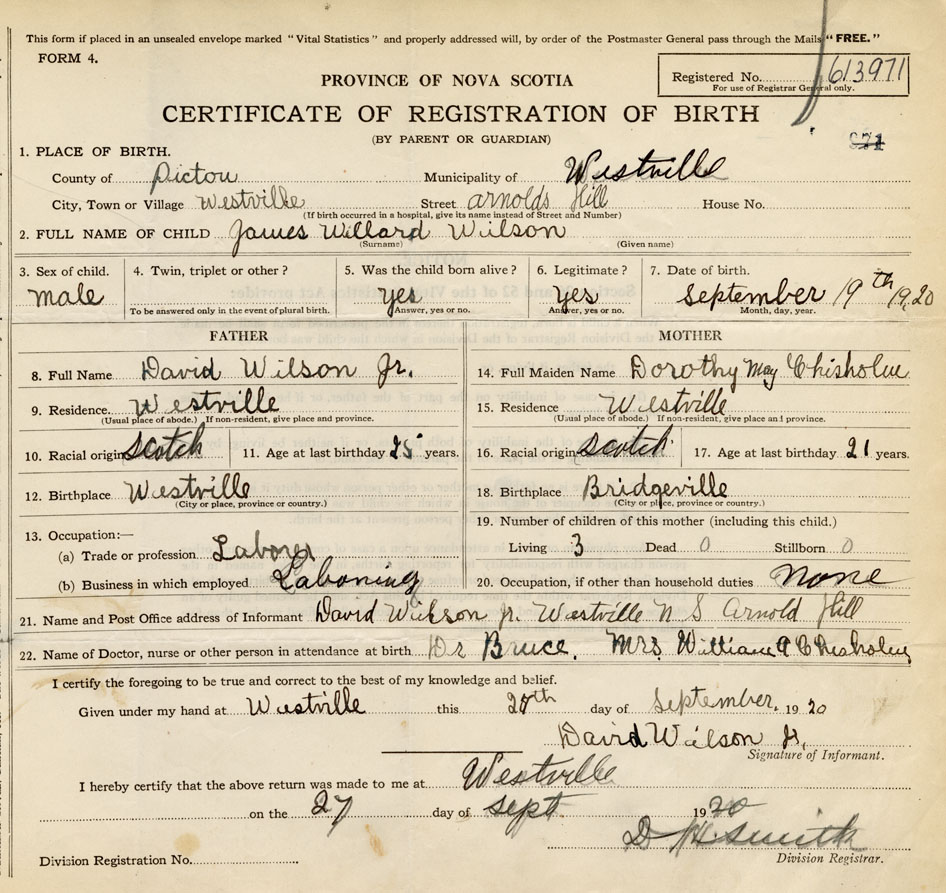 This form if placed in an unsealed envelope marked "Vital Statistics" and properly addressed will, by order of the Postmaster General pass through the Mails "FREE."
FORM 4.
PROVINCE OF NOVA SCOTIA
Registered No. 613971
For use of Registrar General only.
CERTIFICATE OF REGISTRATION OF BIRTH
(BY PARENT OR GUARDIAN)
971
1. PLACE OF BIRTH.
County of Pictou Municipality of Westville
City, Town or Village Westville Street arnolds Hill House No.
(If birth occurred in a hospital, give its name instead of Street and Number)
2. FULL NAME OF CHILD James Willard Wilson
(Surname) (Given name)
3. Sex of child. 4. Twin, triplet or other? 5. Was the child born alive? 6. Legitimate? 7. Date of birth.
male yes yes September 19th 1920
To be answered only in the event of plural birth. Answer, yes or no. Answer, yes or no. Month, day, year.
FATHER MOTHER
8. Full Name David Wilson Jr. 14. Full Maiden Name Dorothy May Chisholm
9. Residence. Westville 15. Residence Westville
(Usual place of abode.) If non-resident, give place and province. (Usual place of abode.) If non-resident, give place and province.
10. Racial origin Scotch 11. Age at last birthday 25 years. 16. Racial origin Scotch 17. Age at last birthday 21 years.
12. Birthplace Westville 18. Birthplace Bridgeville
(City or place, province or country.) (City or place, province or country.)
13. Occupation:— 19. Number of children of this mother (including this child.)
(a) Trade or profession Laborer Living 3 Dead 0 Stillborn 0
(b) Business in which employed Laboring 20. Occupation, if other than household duties None
21. Name and Post Office address of Informant David Wilson Jr. Westville N S Arnold Hill
22. Name of Doctor, nurse or other person in attendance at birth Dr Bruce. Mrs William A Chisholm
I certify the foregoing to be true and correct to the best of my knowledge and belief.
Given under my hand at Westville this 20th day of September. 1920
David Wilson Jr.
Signature of Informant.
I hereby certify that the above return was made to me at Westville
on the 27 day of Sept 1920
D H Smith
Division Registrar.
Division Registration No.